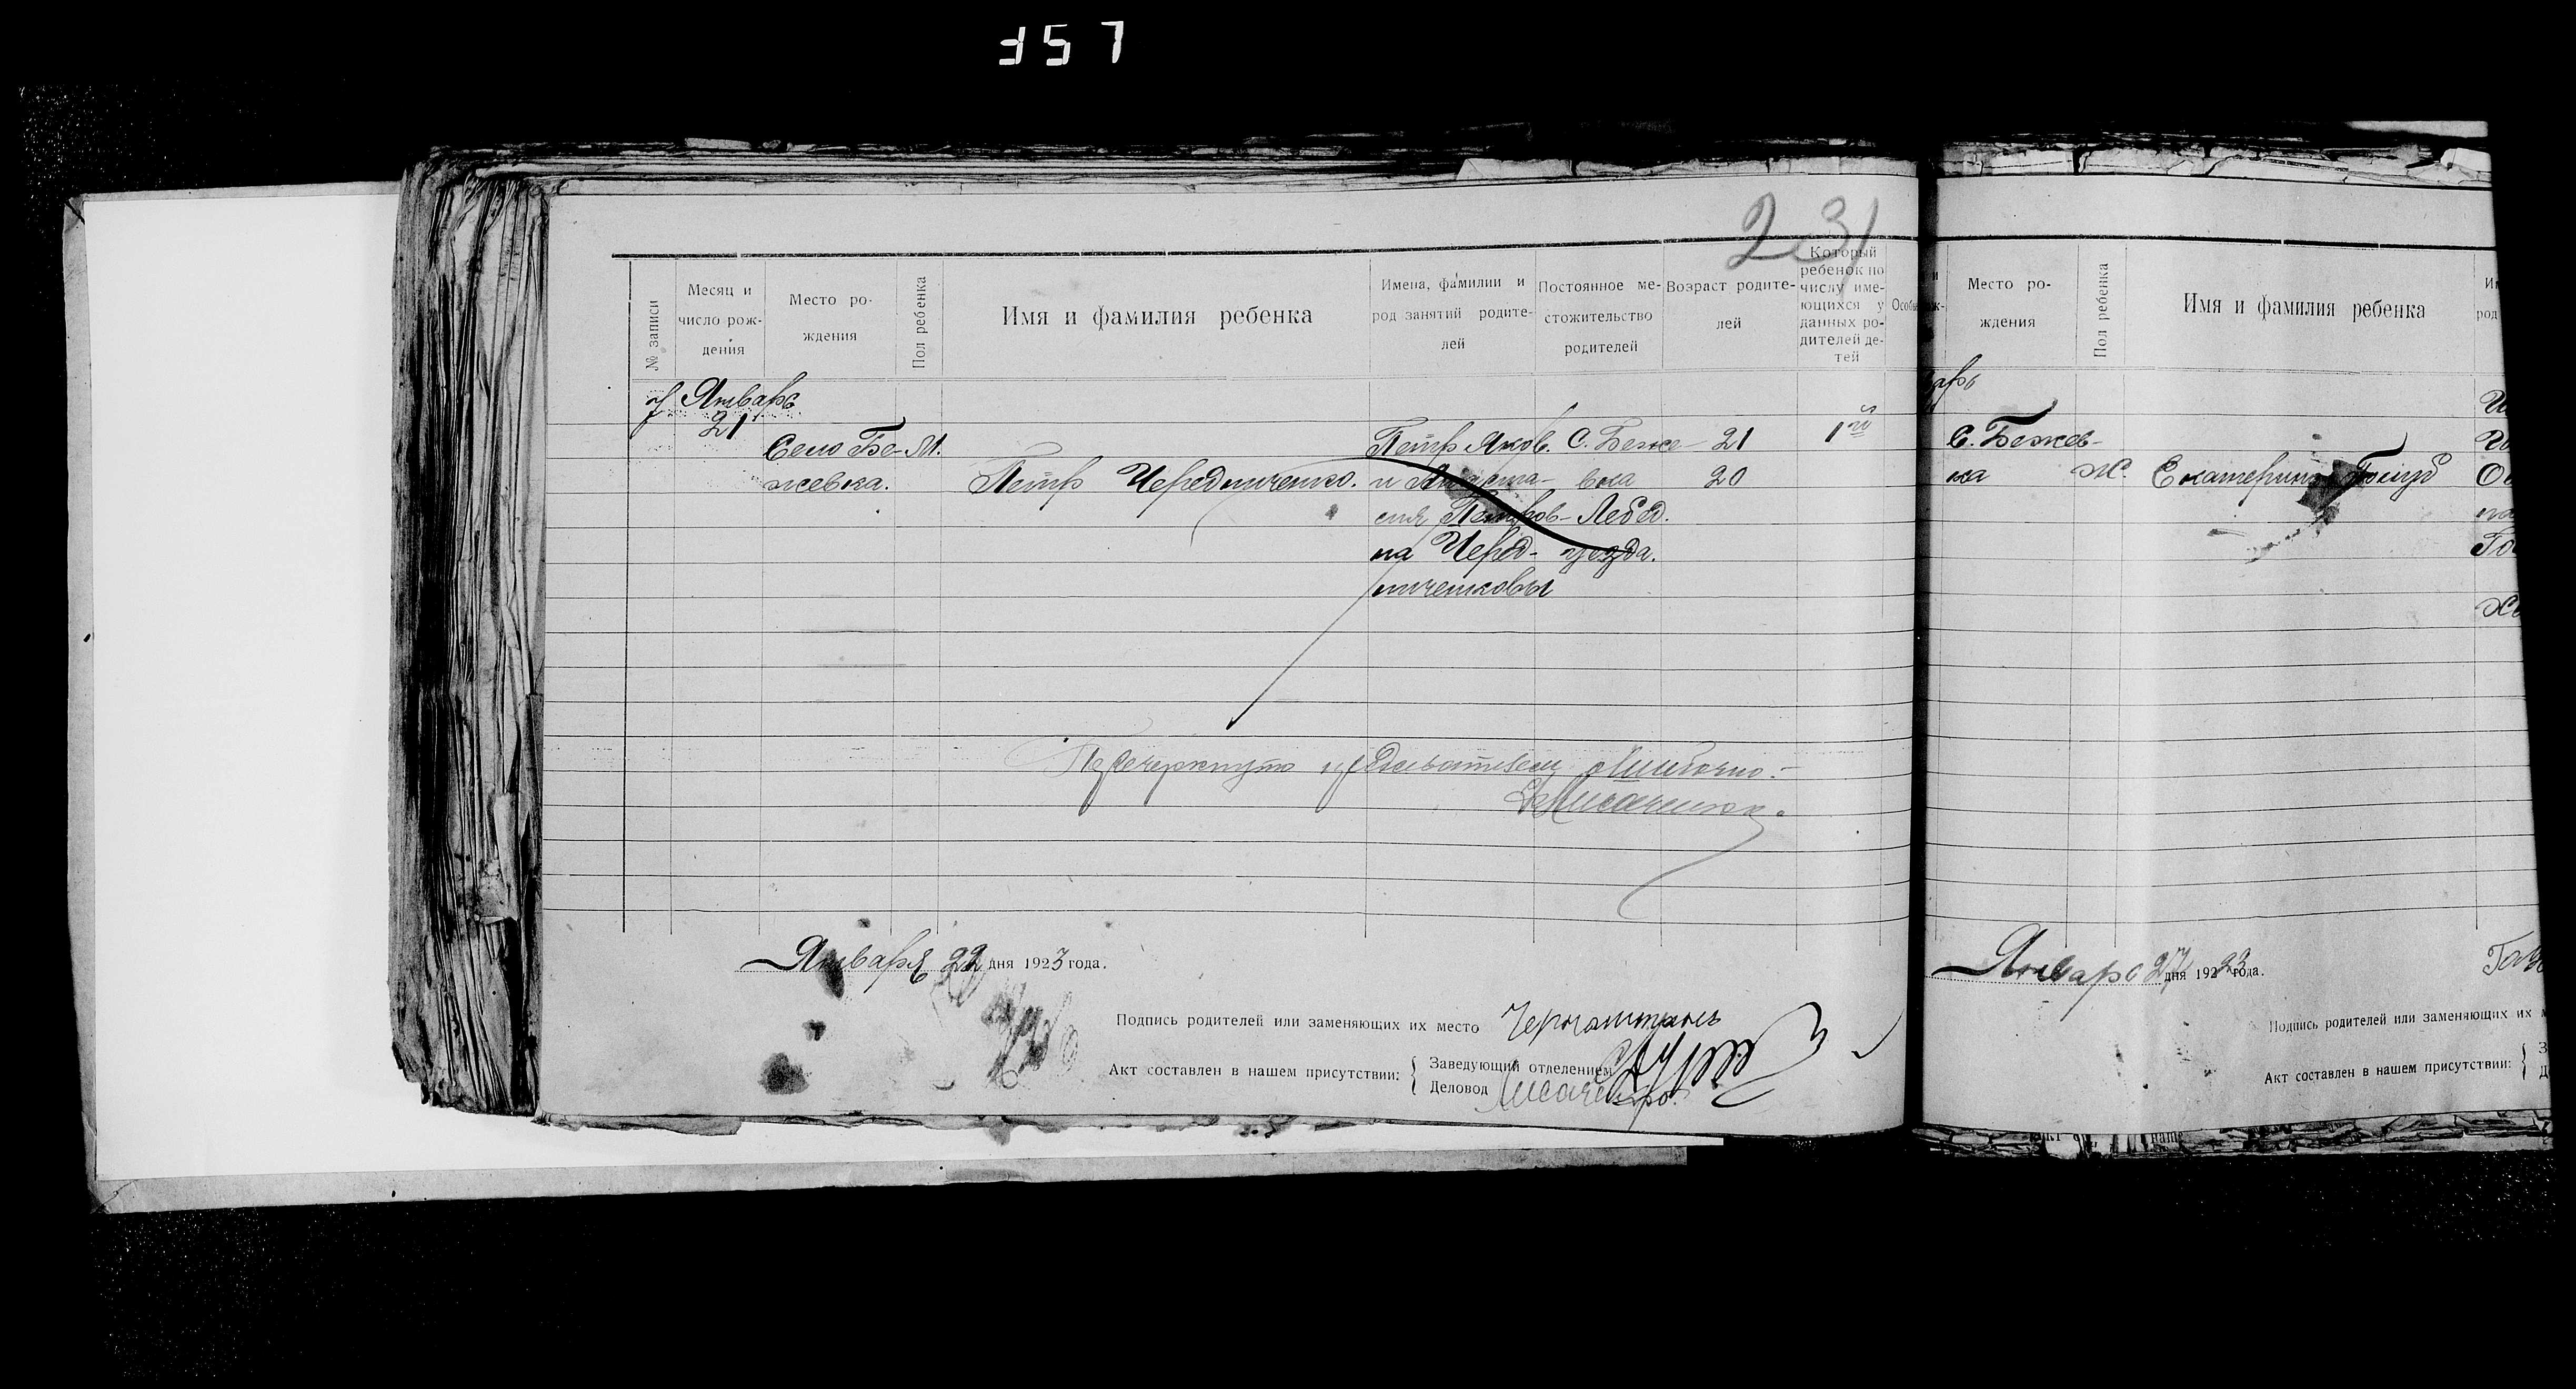 357
231
№ записи
Месяц и число рож-дения
Место ро-ждения
Пол ребенка
Имя и фамилия ребенка
Имена, фамилии и род занятий родите-лей
Постоянное ме-стожительство родителей
Возраст родите-лей
Который ребенок по числу име-ющихся у данных ро-дителей де-тей
Январь
21
Село Бе-
жевка.
М.
Петр Чередниченко.
Петр Яков.
и Анаста-
сия Петров-
на Черед-
ниченковы
С. Беже-
вка
Лебед.
уезда.
21
20
1й
Перечеркнуто
ошибочно.-
Января 22 дня 1923 года.
Подпись родителей или заменяющих их место
Акт составлен в нашем присутствии:
Заведующий отделением
Деловод
Место ро-ждения
Пол ребенка
Имя и фамилия ребенка
С. Бежев-
ка
Ж.
Екатерина
Январь 27 дня 1923 года.
Подпись родителей или заменяющих их
Акт составлен в нашем присутствии: